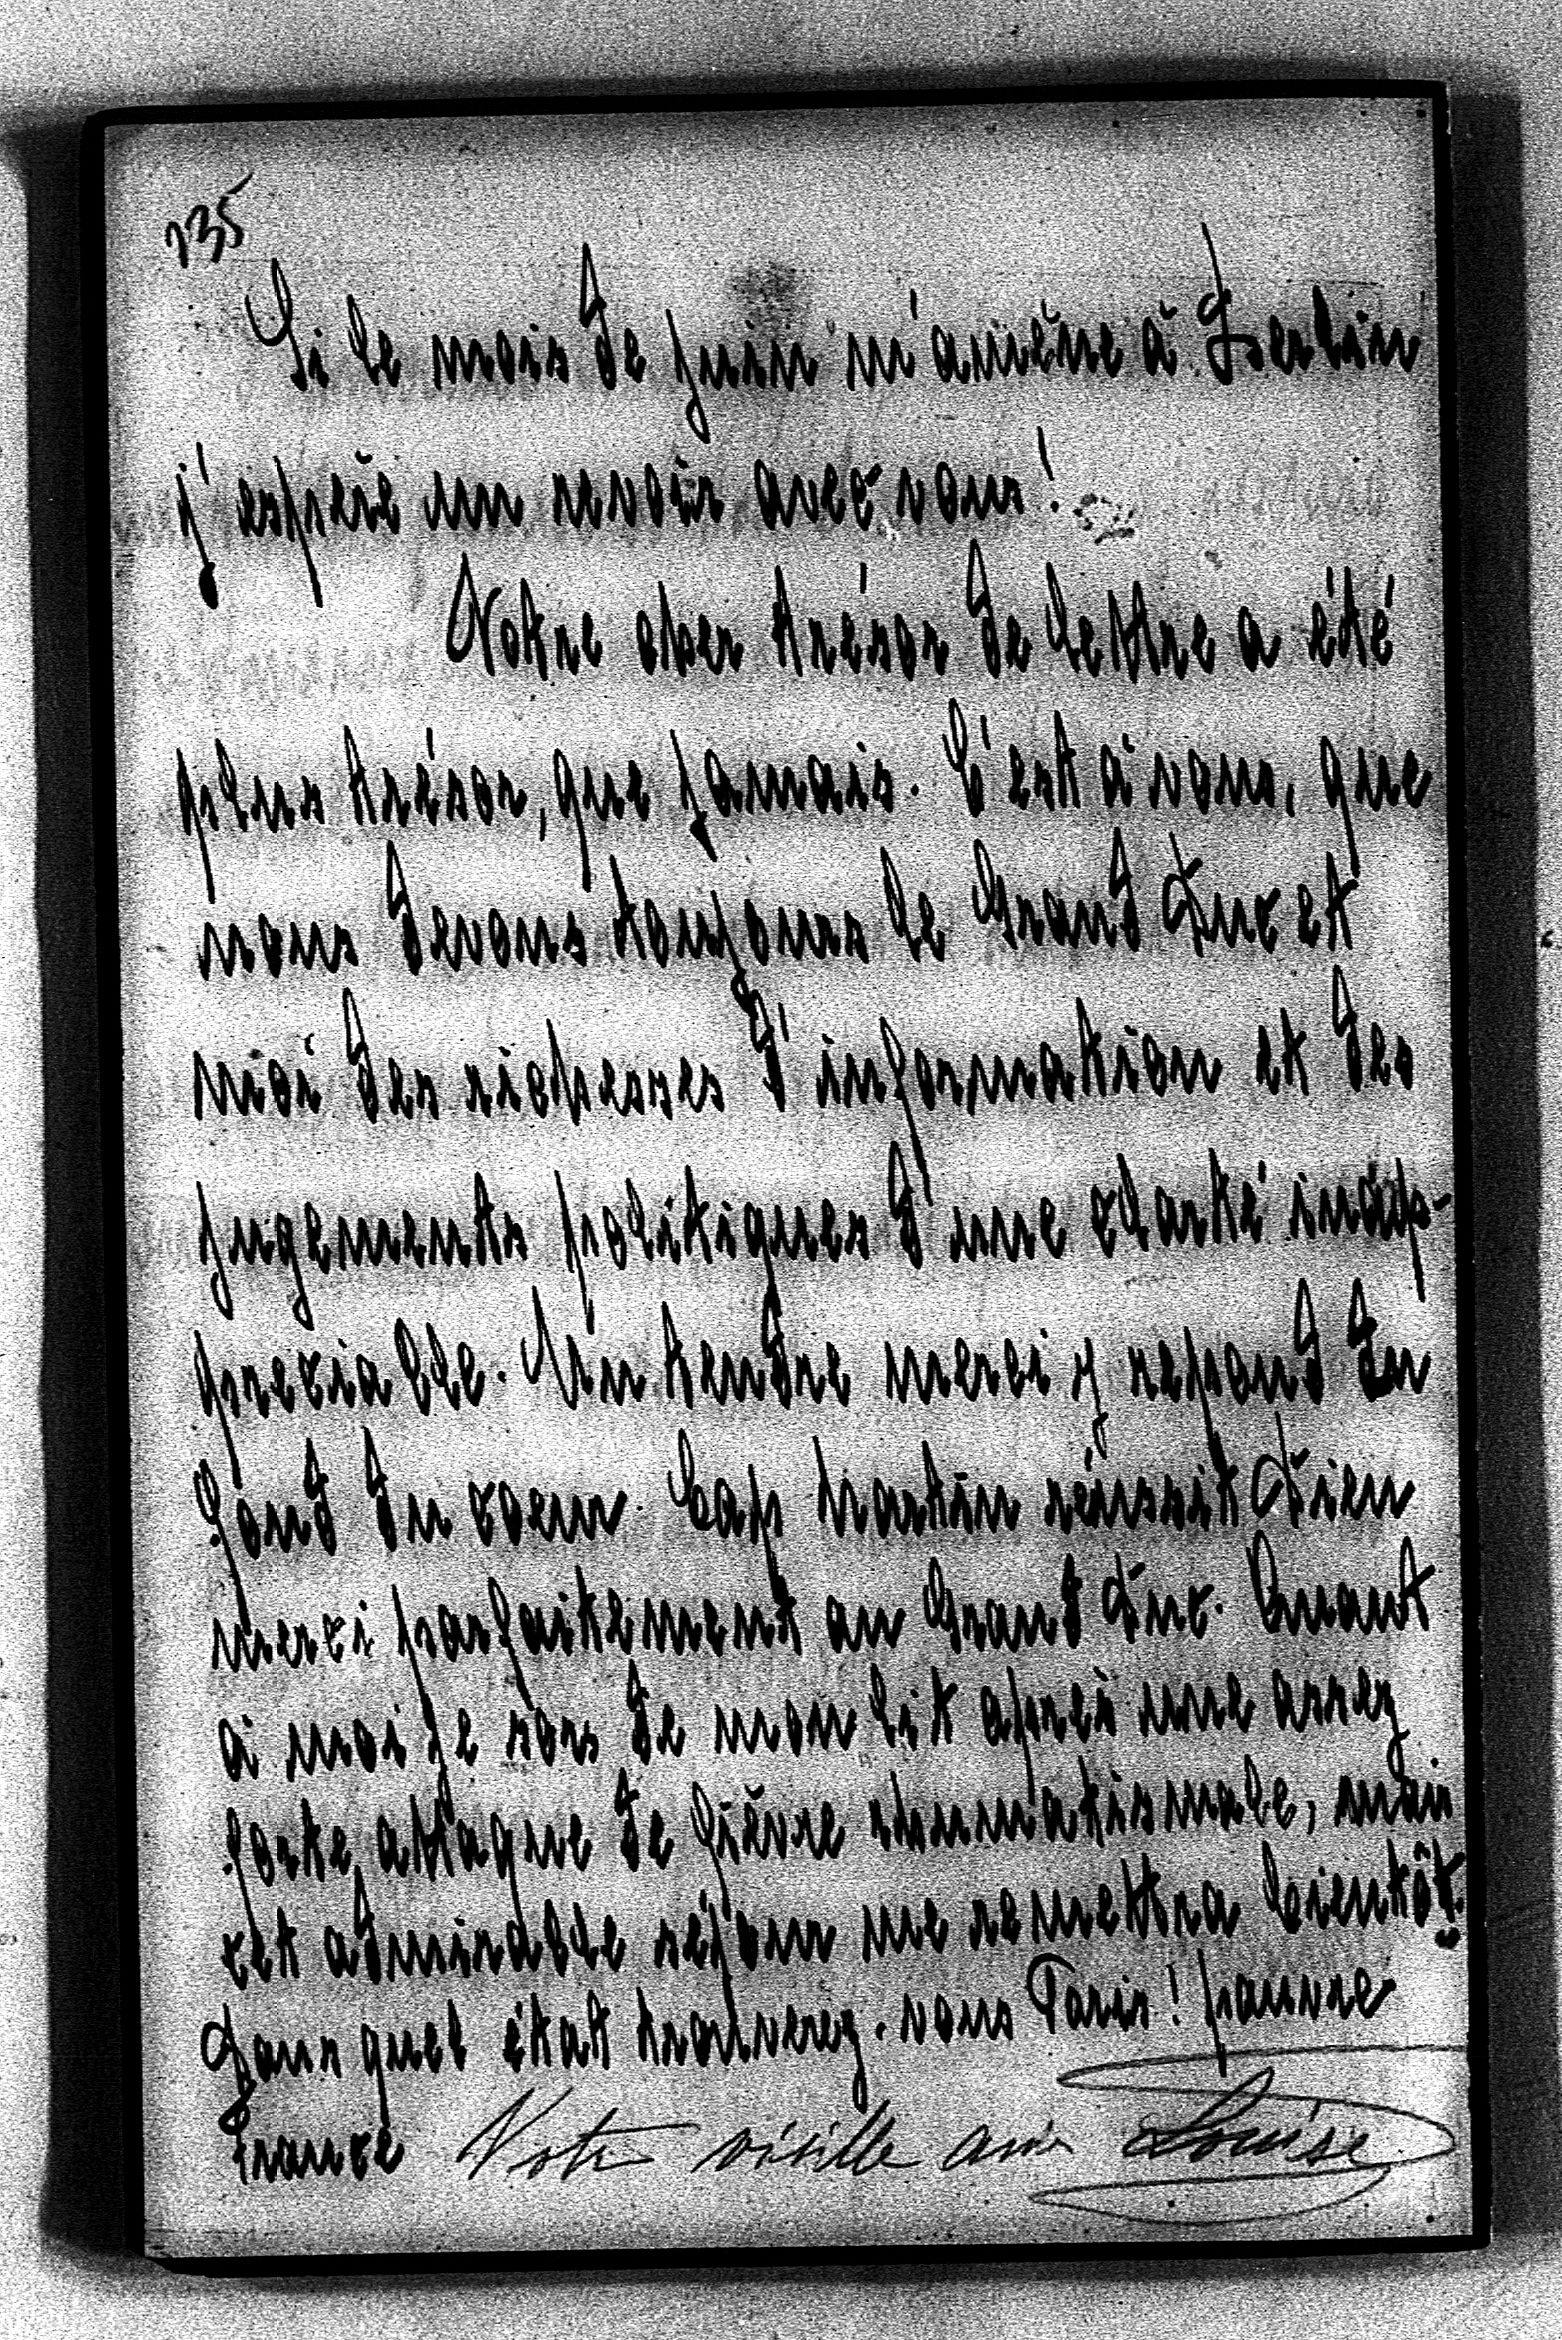 135
Si le mois de juin m'amène à Berlin
j'espère un revoir avec vous!
Votre cher trésor de lettre a été
plus trésor, que jamais. C'est à vous, que
nous devons toujours le Grand Duc et
moi des richesses d'information et des
jugements politiques d'une clarté inap-
preciable. Un tendre merci y repond du
fond du coeur. Cap Martin réussit Dieu
merci parfaitement au Grand Duc. Quant
à moi je sors de mon lit après une assez
forte attaque de fièvre rhumatismale, mais
cet admirable séjour me remettra bientôt.
Dans quel état trouverez-vous Paris! pauvre
France Votre vieille amie Louise